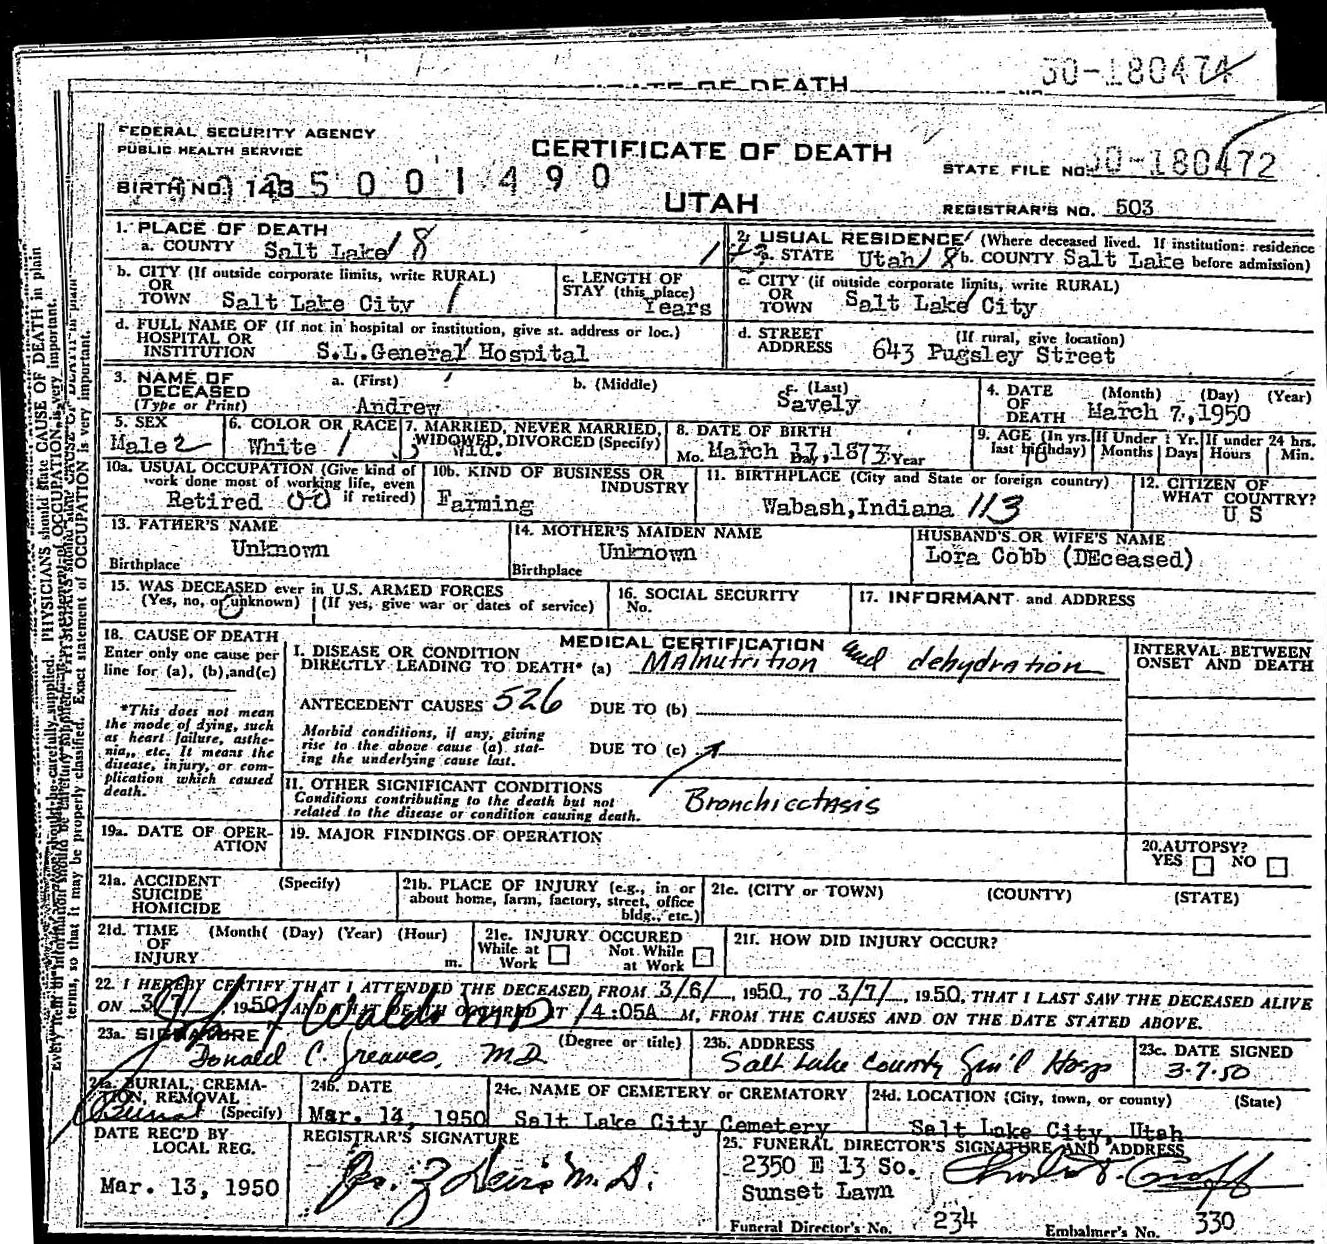 50-180474
CERTIFICATE OF DEATH
FEDERAL SECURITY AGENCY
PUBLIC HEALTH SERVICE
CERTIFICATE OF DEATH
STATE FILE NO. 50-180472
BIRTH NO. 143 5001490
UTAH
REGISTRAR'S NO. 503
1. PLACE OF DEATH
a. COUNTY Salt Lake 18
2. USUAL RESIDENCE (Where deceased lived. If institution: residence before admission)
a. STATE Utah 18 b. COUNTY Salt Lake
b. CITY (If outside corporate limits, write RURAL)
OR
TOWN Salt Lake City 1
c. LENGTH OF
STAY (this place)
Years
c. CITY (if outside corporate limits, write RURAL)
OR
TOWN Salt Lake City
d. FULL NAME OF (If not in hospital or institution, give st. address or loc.)
HOSPITAL OR
INSTITUTION S.L.General Hospital
d. STREET (If rural, give location)
ADDRESS 643 Pugsley Street
3. NAME OF
DECEASED
(Type or Print)
a. (First) b. (Middle) c. (Last)
Andrew Savely
4. DATE (Month) (Day) (Year)
OF
DEATH March 7, 1950
5. SEX
Male 2
6. COLOR OR RACE
White 1
7. MARRIED, NEVER MARRIED,
WIDOWED, DIVORCED (Specify)
Wid. 3
8. DATE OF BIRTH
Mo. March Day 17, 1873 Year
9. AGE (In yrs. last birthday)
If Under 1 Yr.
Months Days
If under 24 hrs.
Hours Min.
10a. USUAL OCCUPATION (Give kind of
work done most of working life, even
if retired)
Retired 00
10b. KIND OF BUSINESS OR
INDUSTRY
Farming
11. BIRTHPLACE (City and State or foreign country)
Wabash, Indiana 113
12. CITIZEN OF
WHAT COUNTRY?
U S
13. FATHER'S NAME
Unknown
Birthplace
14. MOTHER'S MAIDEN NAME
Unknown
Birthplace
HUSBAND'S OR WIFE'S NAME
Lora Cobb (DEceased)
15. WAS DECEASED ever in U.S. ARMED FORCES
(Yes, no, or unknown) (If yes, give war or dates of service)
16. SOCIAL SECURITY
No.
17. INFORMANT and ADDRESS
18. CAUSE OF DEATH
Enter only one cause per
line for (a), (b), and (c)
*This does not mean
the mode of dying, such
as heart failure, asthe-
nia, etc. It means the
disease, injury, or com-
plication which caused
death.
MEDICAL CERTIFICATION
I. DISEASE OR CONDITION
DIRECTLY LEADING TO DEATH* (a) Malnutrition and dehydration
ANTECEDENT CAUSES 526 DUE TO (b)
Morbid conditions, if any, giving
rise to the above cause (a) stat-
ing the underlying cause last.
DUE TO (c)
II. OTHER SIGNIFICANT CONDITIONS
Conditions contributing to the death but not
related to the disease or condition causing death.
Bronchiectasis
INTERVAL BETWEEN
ONSET AND DEATH
19a. DATE OF OPER-
ATION
19. MAJOR FINDINGS OF OPERATION
20. AUTOPSY?
YES NO
21a. ACCIDENT (Specify)
SUICIDE
HOMICIDE
21b. PLACE OF INJURY (e.g., in or
about home, farm, factory, street, office
bldg., etc.)
21c. (CITY or TOWN) (COUNTY) (STATE)
21d. TIME (Month( (Day) (Year) (Hour)
OF
INJURY m.
21e. INJURY OCCURED
While at Work Not While at Work
21f. HOW DID INJURY OCCUR?
22. I HEREBY CERTIFY THAT I ATTENDED THE DECEASED FROM 3/6/, 1950, TO 3/7/, 1950, THAT I LAST SAW THE DECEASED ALIVE
ON 3/7/ 1950 AND THAT DEATH OCCURED AT 4:05A M, FROM THE CAUSES AND ON THE DATE STATED ABOVE.
23a. SIGNATURE (Degree or title)
Donald C. Greaves, M.D.
23b. ADDRESS
Salt Lake County Gen'l Hosp
23c. DATE SIGNED
3-7-50
24a. BURIAL, CREMA-
TION, REMOVAL
(Specify)
Burial
24b. DATE
Mar. 14, 1950
24c. NAME OF CEMETERY or CREMATORY
Salt Lake City Cemetery
24d. LOCATION (City, town, or county) (State)
Salt Lake City, Utah
DATE REC'D BY
LOCAL REG.
Mar. 13, 1950
REGISTRAR'S SIGNATURE
M.D.
25. FUNERAL DIRECTOR'S SIGNATURE AND ADDRESS
2350 E 13 So.
Sunset Lawn
Funeral Director's No. 234 Embalmer's No. 330